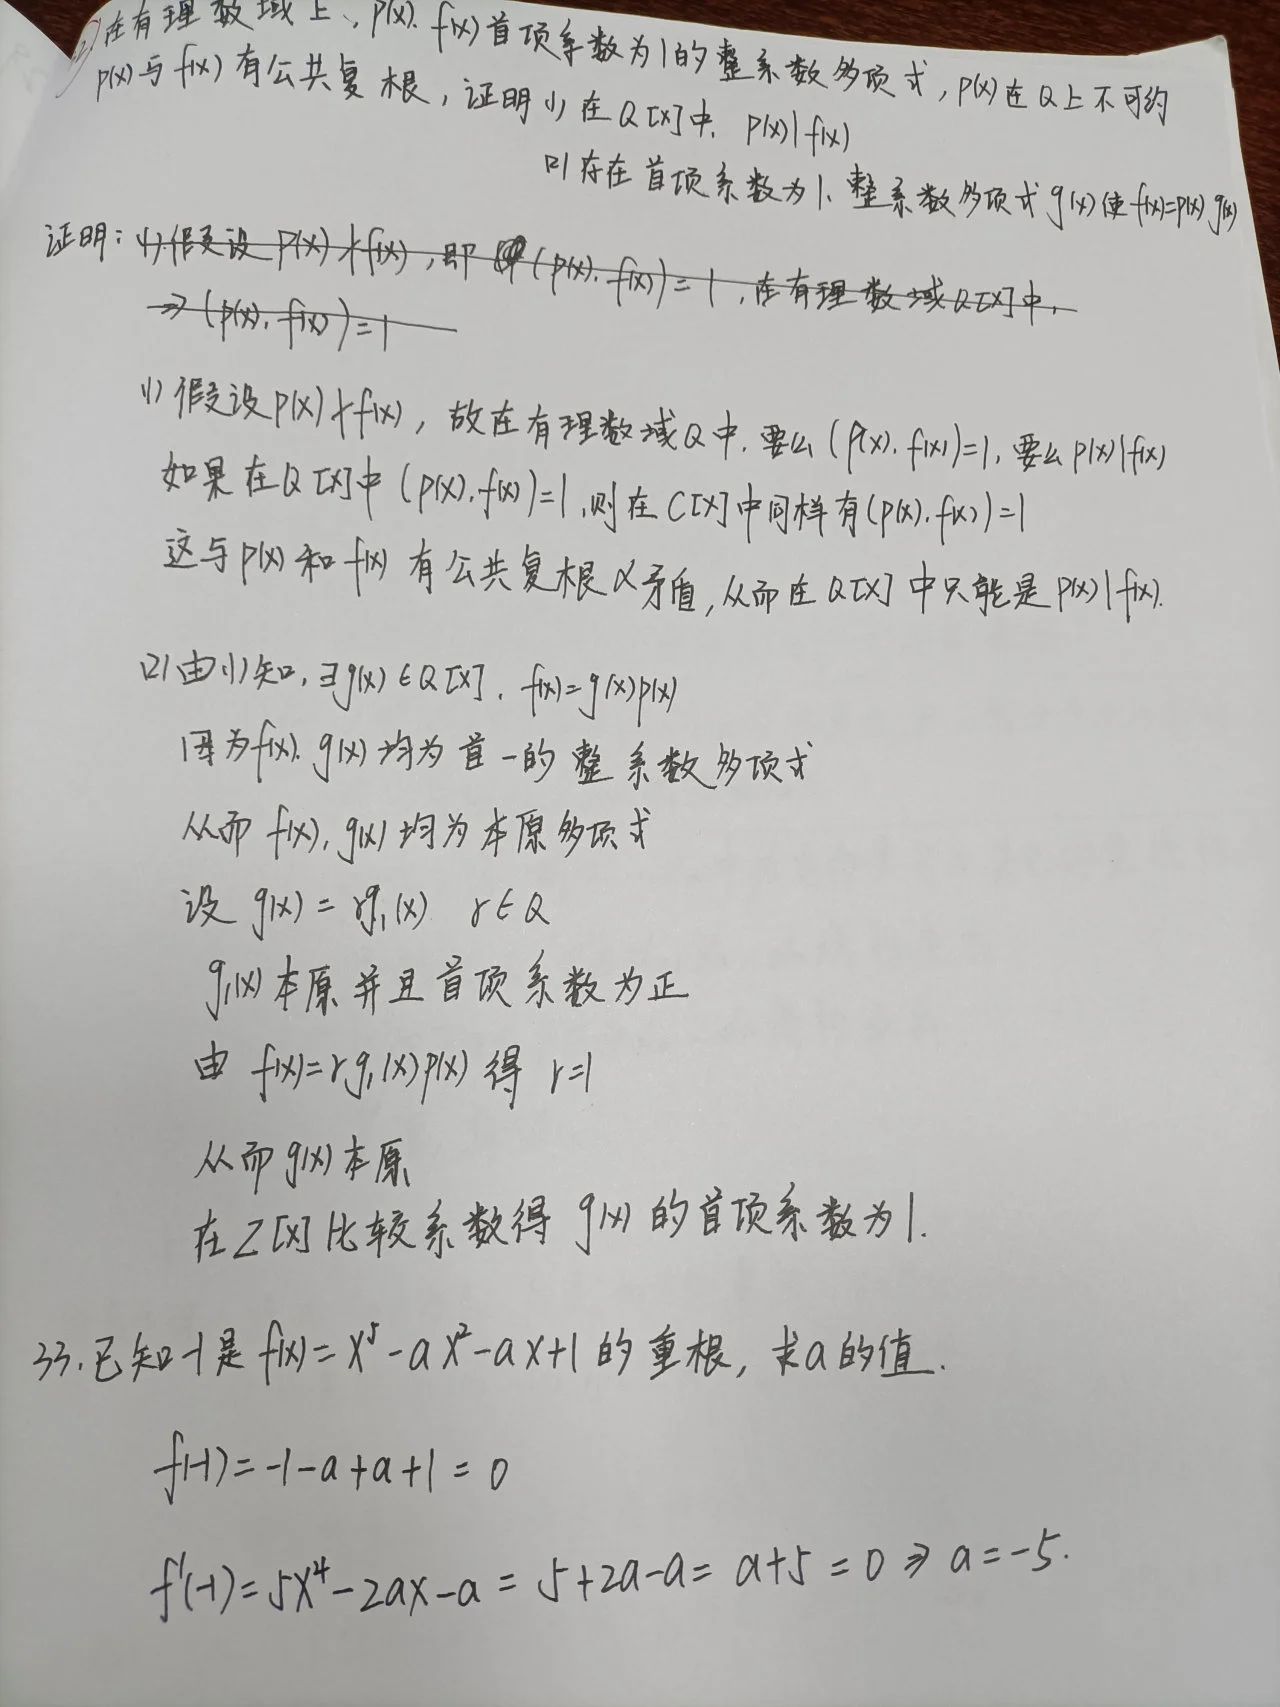 在有理数域上, p(x). f(x)首项系数为1的整系数多项式, p(x)在Q上不可约
p(x)与f(x)有公共复根, 证明 (1) 在Q[x]中, p(x)|f(x)
(2) 存在首项系数为1, 整系数多项式g(x)使f(x)=p(x)g(x)
证明: (1) 假设p(x)∤f(x), 即 (p(x). f(x))=1, 在有理数域Q[x]中,
⇒ (p(x), f(x))=1
(1) 假设p(x)∤f(x), 故在有理数域Q中, 要么(p(x). f(x))=1, 要么p(x)|f(x)
如果在Q[x]中 (p(x), f(x))=1, 则在C[x]中同样有(p(x). f(x))=1
这与p(x)和f(x)有公共复根α矛盾, 从而在Q[x]中只能是p(x)|f(x).
(2) 由(1)知, ∃g(x)∈Q[x], f(x)=g(x)p(x)
因为f(x). g(x)均为首一的整系数多项式
从而f(x), g(x)均为本原多项式
设g(x)=rg₁(x) r∈Q
g₁(x)本原并且首项系数为正
由 f(x)=rg₁(x)p(x) 得 r=1
从而g(x)本原
在Z[x]比较系数得g(x)的首项系数为1.
33. 已知-1是f(x)=x⁵-ax²-ax+1的重根, 求a的值.
f(-1)=-1-a+a+1=0
f'(-1)=5x⁴-2ax-a=5+2a-a=a+5=0⇒a=-5.